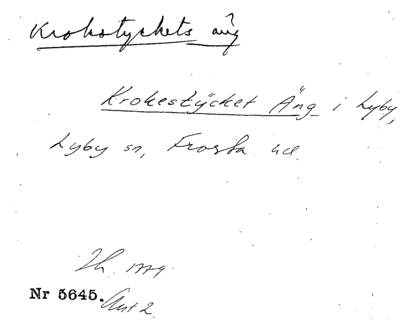 Krokstyckets äng
Krokestÿcket Äng i Lyby,
Lyby sn, Frosta hd.
Lh. 1779.
Nr 5645. Akt 2